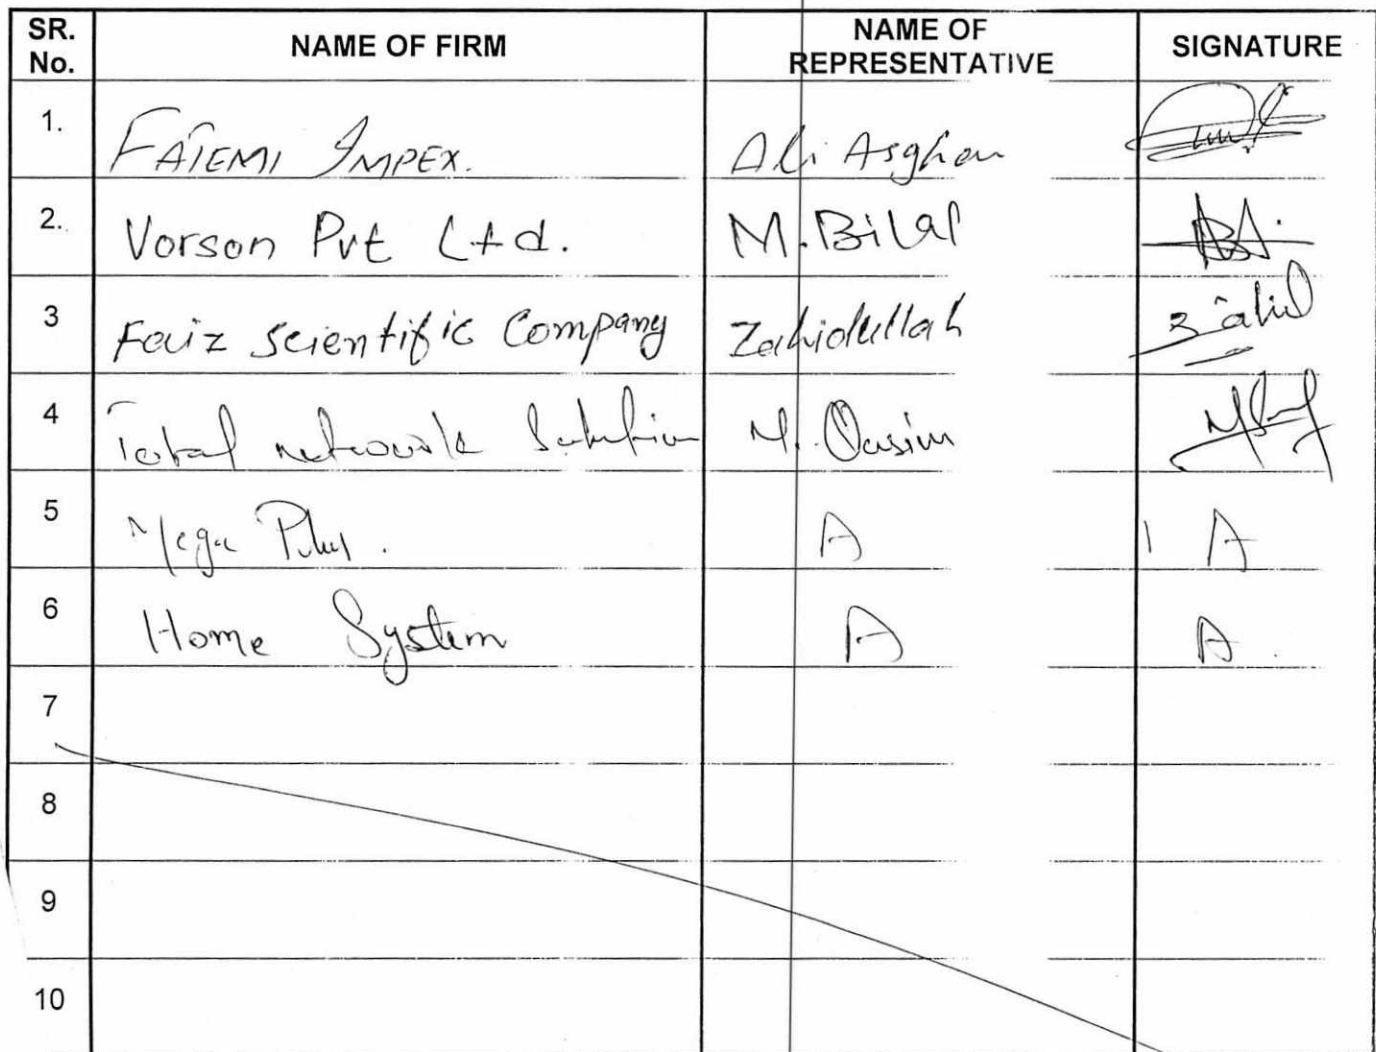 SR. No. NAME OF FIRM NAME OF REPRESENTATIVE SIGNATURE
1. FATEMI IMPEX. Ali Asghar
2. Vorson Pvt Ltd. M. Bilal
3 Faiz Scientific Company Zahidullah Zahid
4 Total network Solution M. Qasim
5 Mega A A
6 Home System A A
7
8
9
10